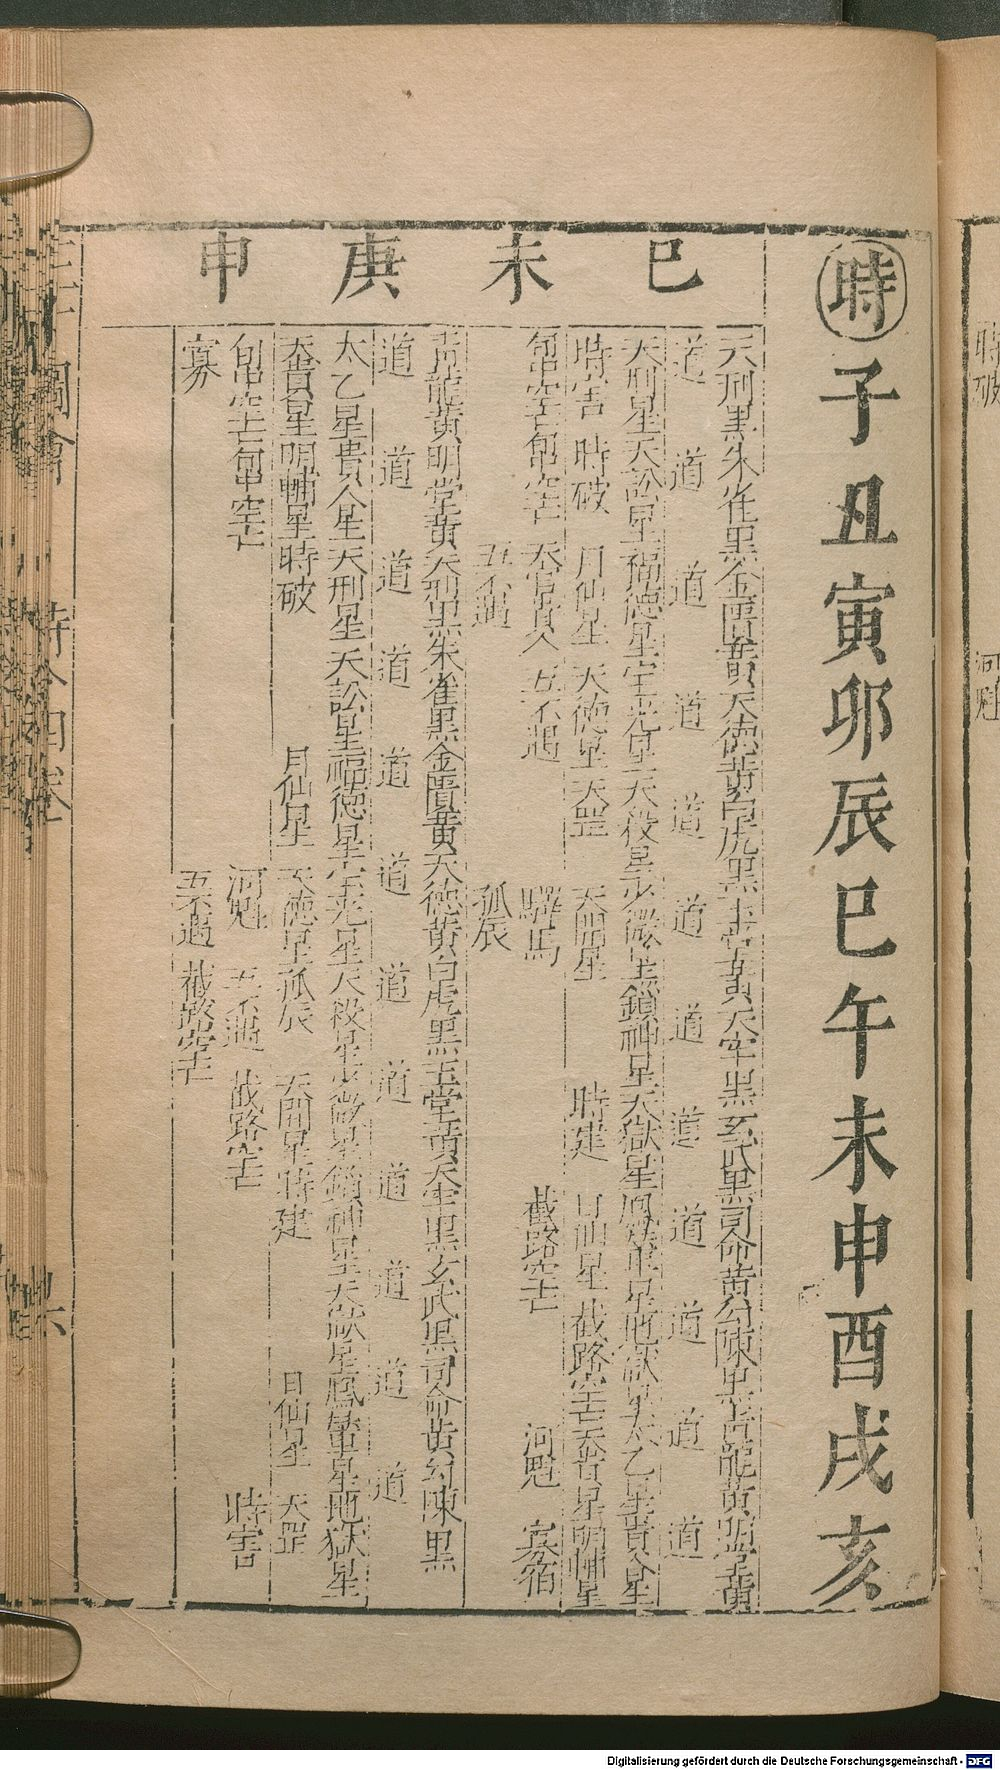 時 子丑寅卯辰巳午未申酉戌亥
巳未庚申
天刑黑朱雀黑金匱黃天德黃白虎黑玉堂黃天牢黑玄武黑司命黃勾陳黑青龍黃明堂黃
道 道 道 道 道 道 道 道 道 道 道 道
天刑星天訟星福德星宝光星天殺星少微星鎖神星天獄星鳳輦星地獄星太乙星貴人星
時害 時破 月仙星 天德星 天罡 天開星 時建 日仙星 截路空亡 天貴星 明輔星
旬中空亡 旬中空亡 天官貴人 五不遇 驛馬 截路空亡 河魁 寡宿
五不遇 孤辰
青龍黃明堂黃天刑黑朱雀黑金匱黃天德黃白虎黑玉堂黃天牢黑玄武黑司命黃勾陳黑
道 道 道 道 道 道 道 道 道 道 道 道
太乙星貴人星天刑星天訟星福德星宝光星天殺星少微星鎖神星天獄星鳳輦星地獄星
天貴星 明輔星 時破 月仙星 天德星 孤辰 天開星 時建 日仙星 天罡
旬中空亡 旬中空亡 河魁 五不遇 截路空亡 時害
寡 五不遇 截路空亡
三才圖會 時令四卷 六
時破 河魁
Digitalisierung gefördert durch die Deutsche Forschungsgemeinschaft - DFG